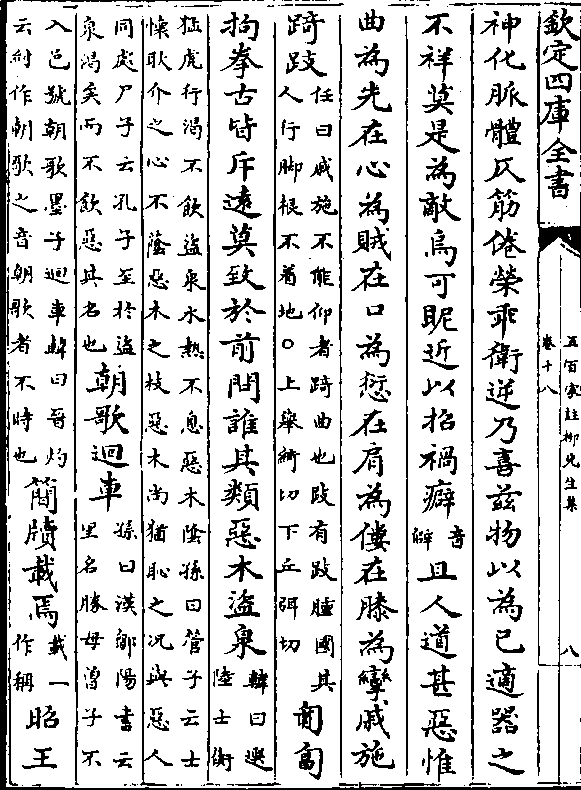 欽定四庫全書
五百家註柳先生集
卷十八
八
神化脈體仄筋倦榮乖衛逆乃喜茲物以為已適器之
不祥莫是為敵烏可昵近以招禍癖音僻且人道甚惡惟
曲為先在心為賊在口為愆在肩為僂在膝為攣戚施
踦跂任曰戚施不能仰者踦曲也跂有跂踵國其人行脚根不着地○上舉綺切下丘弭切匍匐
拘拳古皆斥遠莫致於前問誰其類惡木盜泉韓曰選陸士衡
猛虎行渴不飲盜泉水熱不息惡木陰孫曰管子云士懷耿介之心不蔭惡木之枝惡木尚猶恥之况與惡人
同處尸子云孔子至於盜泉渴矣而不飲惡其名也朝歌迴車孫曰漢鄒陽書云里名勝母曾子不
入邑號朝歌墨子迴車韓曰晉灼云紂作朝歌之音朝歌者不時也簡牘載焉載一作稱昭王